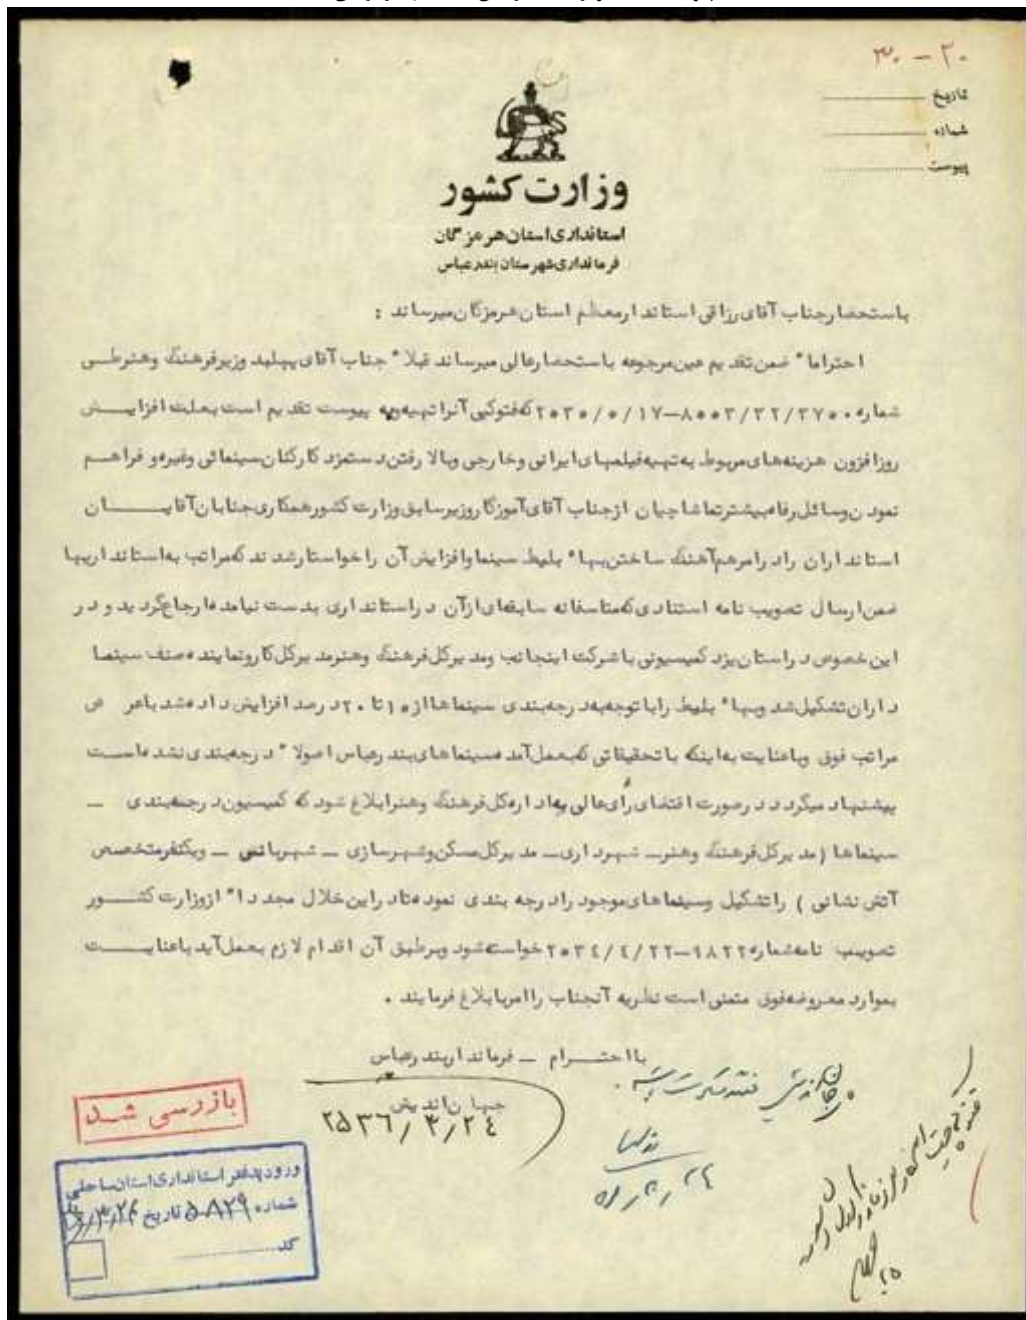 ۳۰ - ۲۰
تاریخ
شماره
پیوست
وزارت کشور
استانداری استان هرمزگان
فرمانداری شهرستان بندرعباس
باستحضار جناب آقای رزاقی استاندار معظم استان هرمزگان میرساند :
احتراما" ضمن تقدیم عین مرجوعه باستحضار عالی میرساند قبلا" جناب آقای پهلبد وزیر فرهنگ و هنر طی
شماره ۸۰۰۳/۳۲/۳۷۰۰-۲۰۳۰/۵/۱۷ که فتوکپی آنرا تهیه وبه پیوست تقدیم است بعلت افزایش
روزافزون هزینه های مربوط به تهیه فیلمهای ایرانی وخارجی وبالا رفتن دستمزد کارکنان سینمائی وغیره و فراهم
نمودن وسائل رفاه بیشتر تماشاچیان ازجناب آقای آموزگار وزیر سابق وزارت کشور همکاری جنابان آقایان
استانداران را در امر هم آهنگ ساختن بهاء بلیط سینما وافزایش آن را خواستار شدند که مراتب به استانداریها
ضمن ارسال تصویب نامه استنادی که متاسفانه سابقه ای ازآن در استانداری بدست نیامده ارجاع گردید و در
این خصوص در استان یزد کمیسیونی باشرکت اینجانب ومدیرکل فرهنگ وهنر مدیرکل کار ونماینده صنف سینما
داران تشکیل شد وبهاء بلیط را با توجه به درجه بندی سینماها از ۱۰ تا ۲۰ درصد افزایش داده شد باعرض
مراتب فوق وباعنایت به اینکه با تحقیقاتی که بعمل آمده سینماهای بندرعباس اصولا" درجه بندی نشده است
پیشنهاد میگردد در صورت اقتضای رأی عالی به اداره کل فرهنگ وهنر ابلاغ شود که کمیسیون درجه بندی –
سینماها (مدیرکل فرهنگ وهنر – شهرداری – مدیرکل مسکن وشهرسازی – شهربانی – ویکنفر متخصص
آتش نشانی ) را تشکیل وسینماهای موجود را درجه بندی نموده تا در این خلال مجددا" ازوزارت کشور
تصویب نامه شماره ۹۸۲۲-۲۰۳۴/۴/۲۲ خواسته شود وبرطبق آن اقدام لازم بعمل آید باعنایت
بموارد معروضه فوق متمنی است نظریه آنجناب را امر بابلاغ فرمایند .
با احترام – فرماندار بندرعباس
جهان اندیش
۲۵۳۶/۳/۲۴
بازرسی شد
ورود بدفتر استانداری استان ساحلی
شماره ۵۰۸۲۹ تاریخ
کد